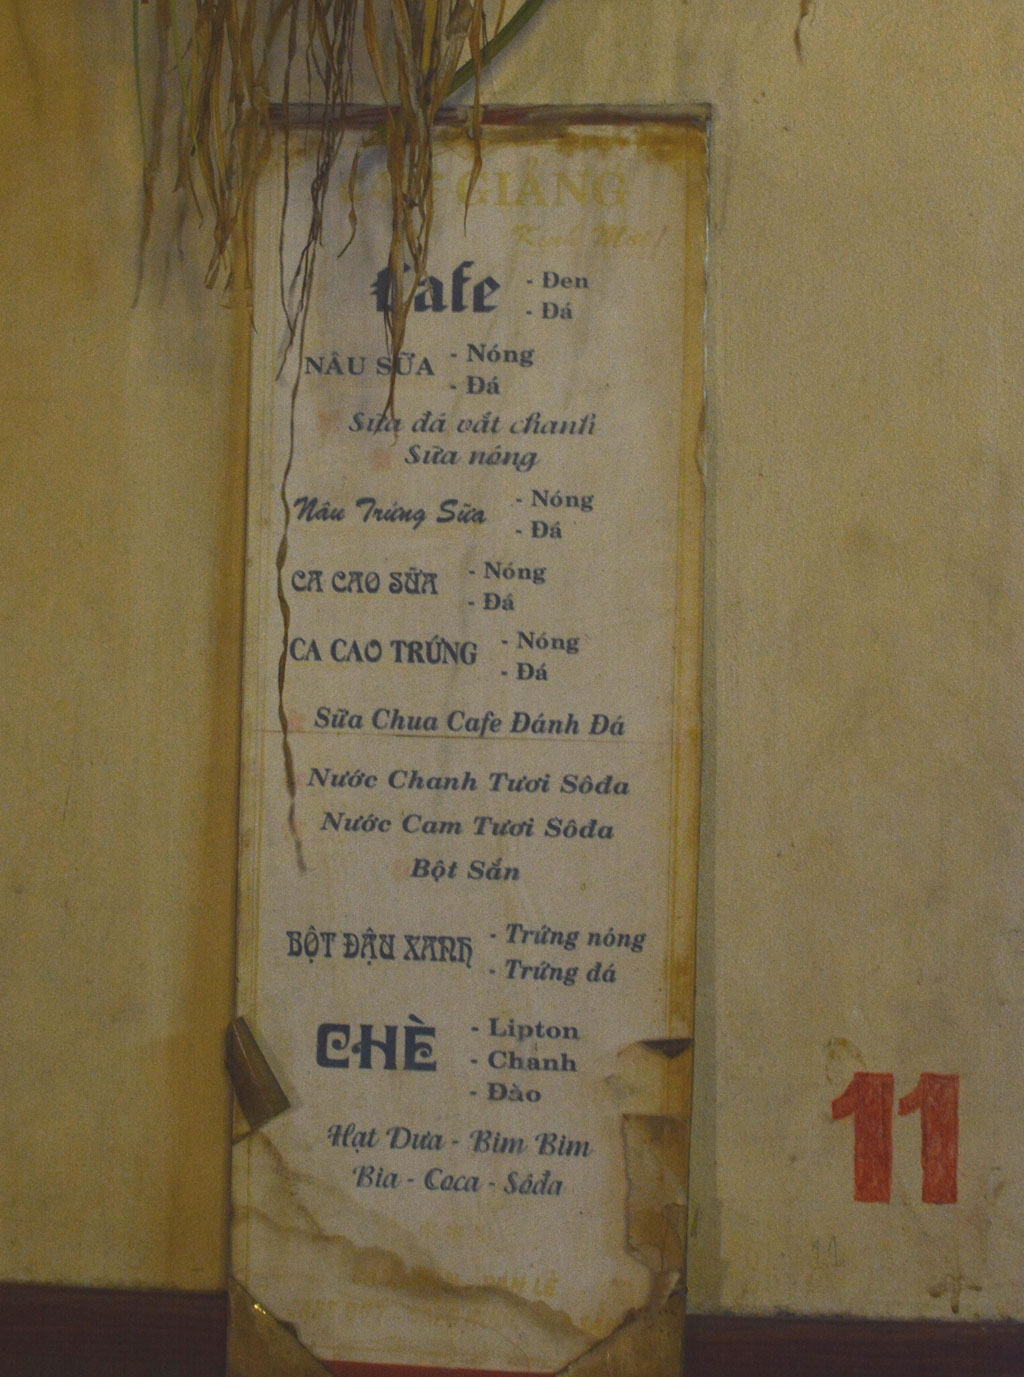 GIẢNG
Kính Mời!
Cafe - Đen
- Đá
NÂU SỮA - Nóng
- Đá
Sữa đá vắt chanh
Sữa nóng
Nâu Trứng Sữa - Nóng
- Đá
CA CAO SỮA - Nóng
- Đá
CA CAO TRỨNG - Nóng
- Đá
Sữa Chua Cafe Đánh Đá
Nước Chanh Tươi Sôđa
Nước Cam Tươi Sôđa
Bột Sắn
BỘT ĐẬU XANH - Trứng nóng
- Trứng đá
CHÈ - Lipton
- Chanh
- Đào
Hạt Dưa - Bim Bim
Bia - Coca - Sôđa
LẺ
11
11